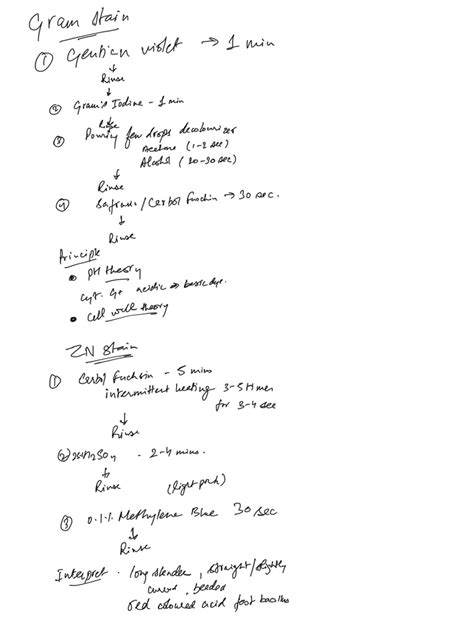 Gram stain
① Gentian violet → 1 min
↓
Rinse
↓
② Gram's Iodine - 1 min
Rinse
③ Pouring few drops decolourizer
Acetone (1-2 sec)
Alcohol (20-30 sec)
↓
Rinse
④ Safranin / Carbol fuschin → 30 sec.
↓
Rinse
Principle
• PH theory
cyt. G+ acidic → basic dye.
• Cell wall theory
ZN stain
① Carbol fuchsin - 5 mins
intermittent heating 3-5 times
for 3-4 sec
↓
Rinse
② H2SO4 - 2-4 mins.
↓
Rinse (light pink)
③ 0.1% Methylene Blue 30 sec
↓
Rinse
Interpret - long slender, straight/slightly
curved, beaded
red coloured acid fast bacillus